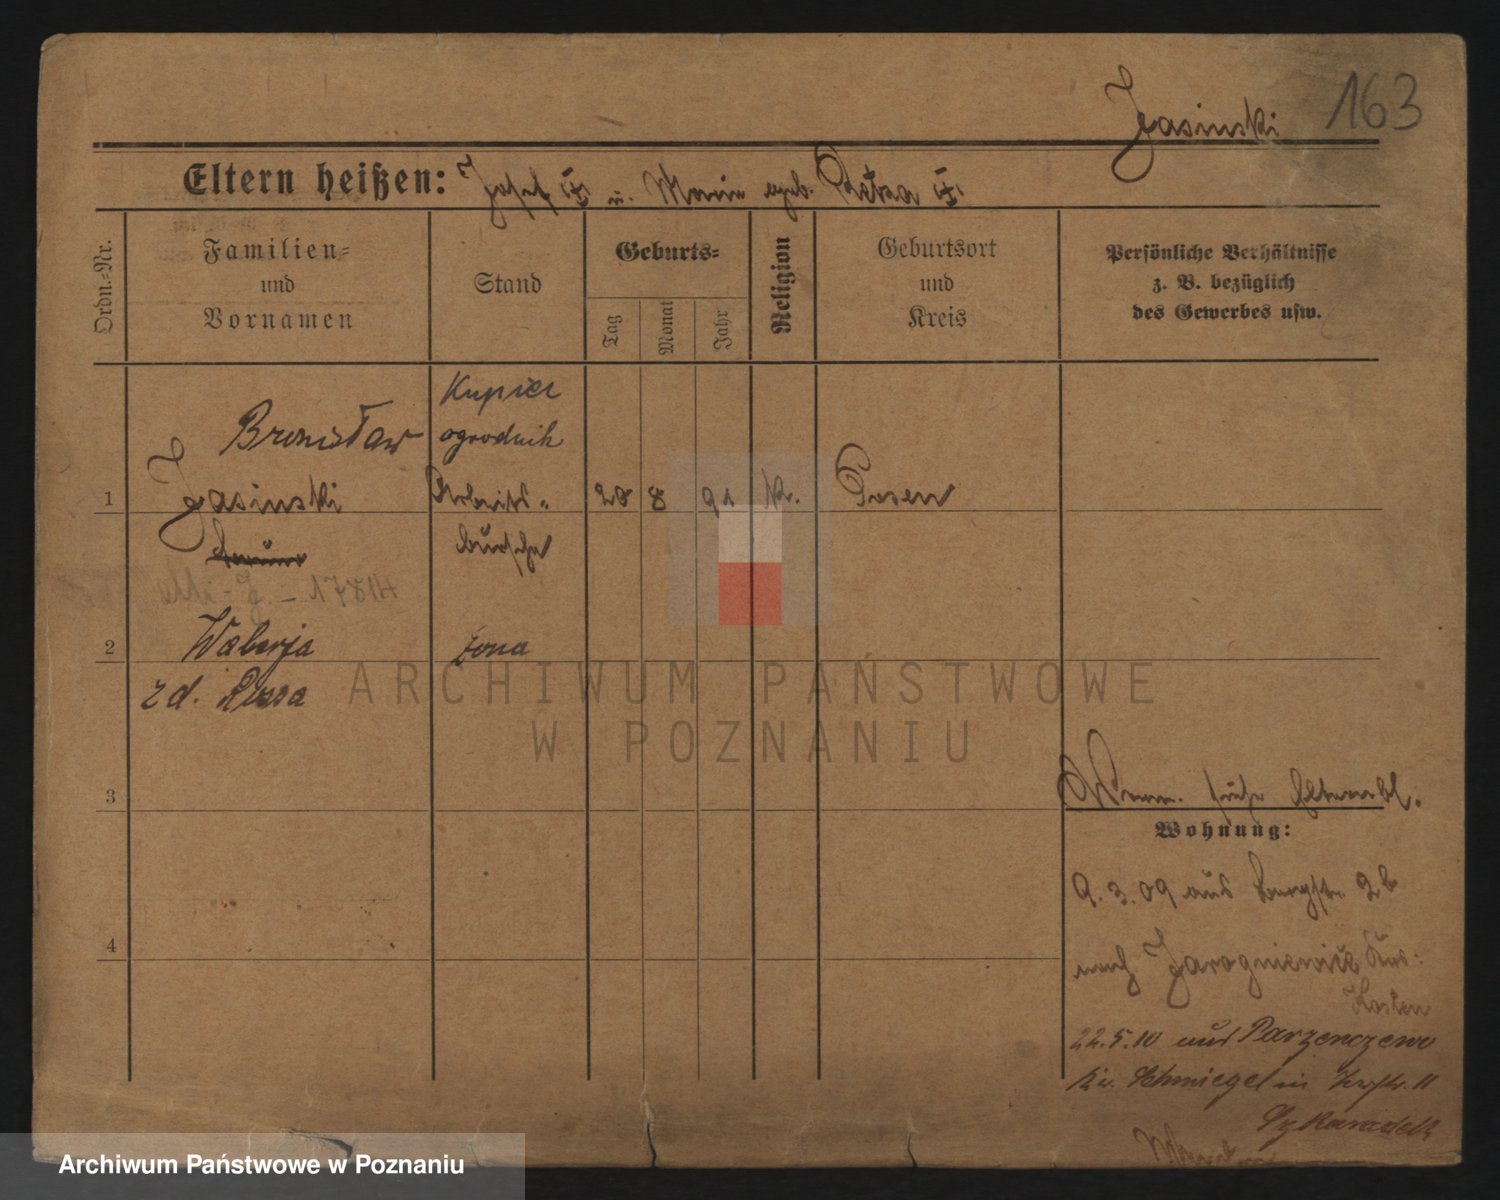 163
Jasinski
Eltern heißen: Josef u. Maria geb.
Ordn.=Nr.
Familien=
und
Vornamen
Stand
Geburts=
Tag
Monat
Jahr
Religion
Geburtsort
und
Kreis
Persönliche Verhältnisse
z. B. bezüglich
des Gewerbes usw.
Kupiec
Bronisław ogrodnik
1 Jasinski Arbeits= 28 8 91 k. Posen
bursche
17814
2 Walerja żona
zd.
3
siehe Elternbl.
Wohnung:
9. 3. 09 aus Bergstr. 2b
4
nach Jarogniewice Krs:
Kosten
22.5.10 aus Parzenczewo
Kr. Schmiegel in 11
ARCHIWUM PAŃSTWOWE
W POZNANIU
Archiwum Państwowe w Poznaniu